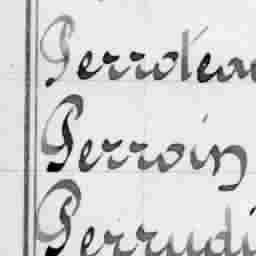 Perroteau
Perroin
Perrudi